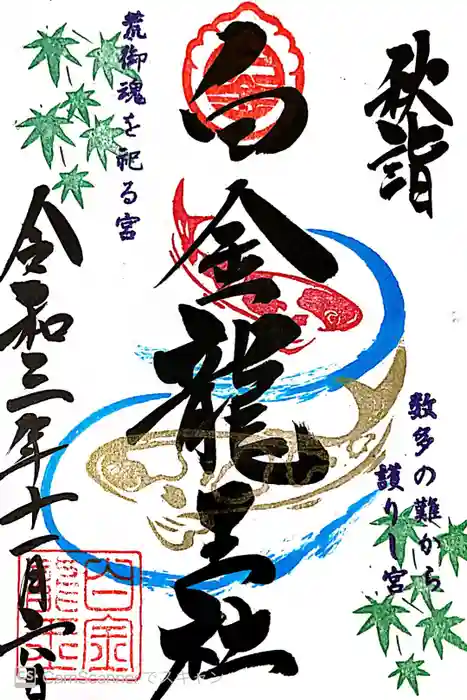 秋詣
数多の難から
護りし宮
白金龍王社
荒御魂を祀る宮
令和三年十一月六日
白金
龍王
CS CamScannerでスキャン